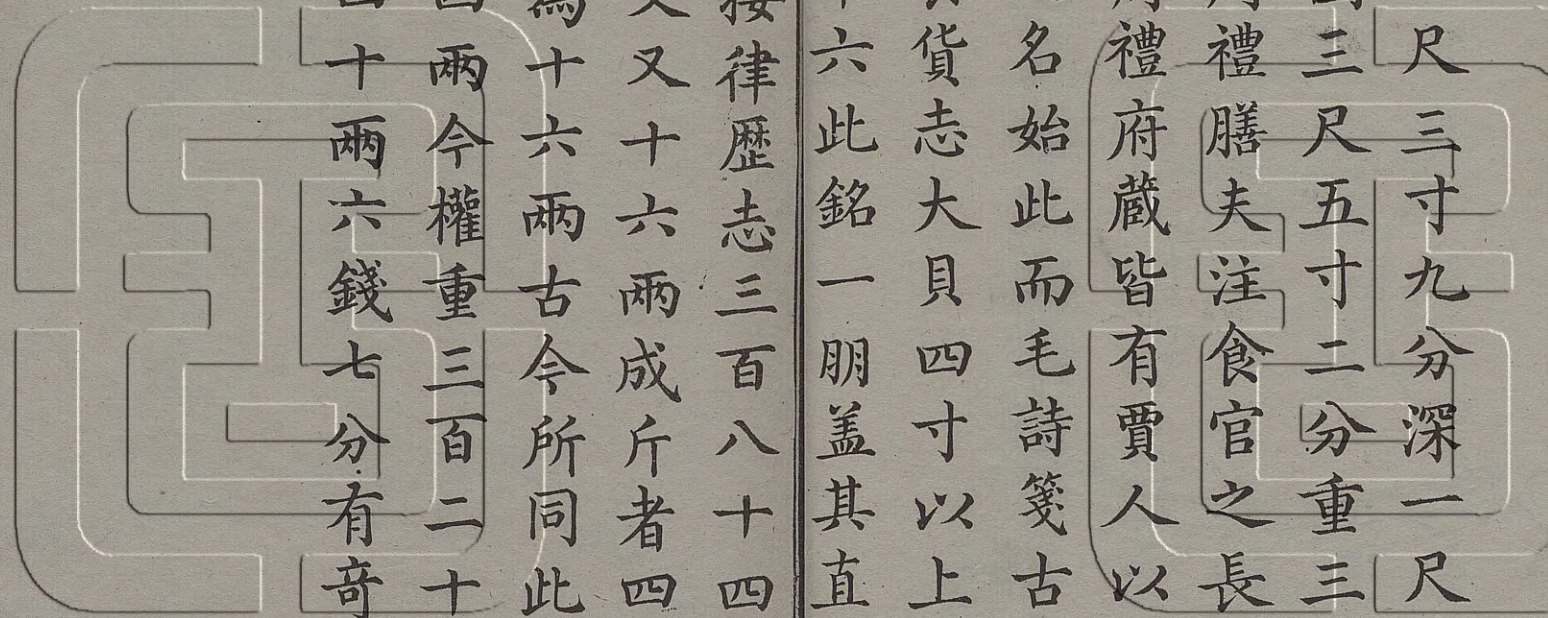 尺三寸九分深一尺
三尺五寸二分重三
禮膳夫注食官之長
禮府蔵皆有賈人以
名始此而毛詩箋古
貨志大貝四寸以上
六此銘一朋葢其直
按律歴志三百八十四
又十六兩成斤者四
為十六兩古今所同此
兩今權重三百二十
十兩六錢七分有竒